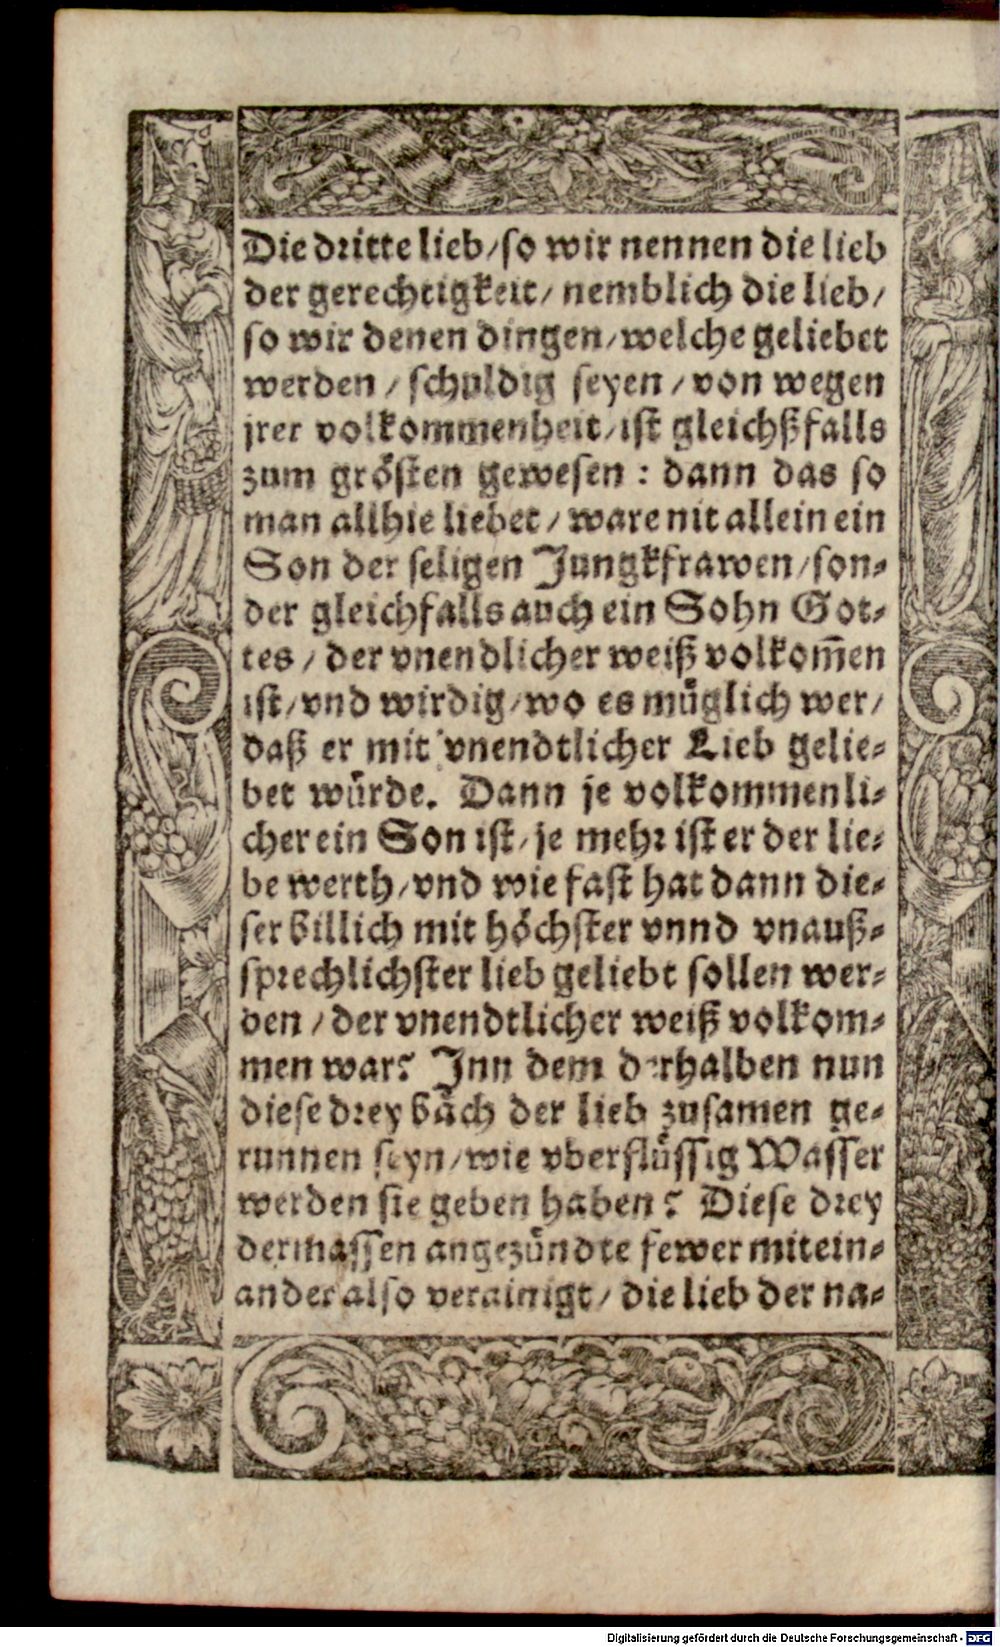 Die dritte lieb/so wir nennen die lieb
der gerechtigkeit/ nemblich die lieb/
so wir denen dingen/welche geliebet
werden / schuldig seyen / von wegen
jrer volkommenheit/ist gleichßfalls
zum grösten gewesen : dann das so
man allhie liebet / ware nit allein ein
Son der seligen Jungkfrawen/son-
der gleichfalls auch ein Sohn Got-
tes / der vnendlicher weiß volkom̃en
ist/vnd wirdig/wo es müglich wer/
daß er mit vnendtlicher Lieb gelie-
bet würde. Dann je volkommenli-
cher ein Son ist/je mehr ist er der lie-
be werth/vnd wie fast hat dann die-
ser billich mit höchster vnnd vnauß-
sprechlichster lieb geliebt sollen wer-
den / der vnendtlicher weiß volkom-
men war? Inn dem derhalben nun
diese drey bäch der lieb zusamen ge-
runnen seyn/wie vberflüssig Wasser
werden sie geben haben? Diese drey
dermassen angezündte fewer mitein-
ander also verainigt/ die lieb der na-
Digitalisierung gefördert durch die Deutsche Forschungsgemeinschaft - DFG